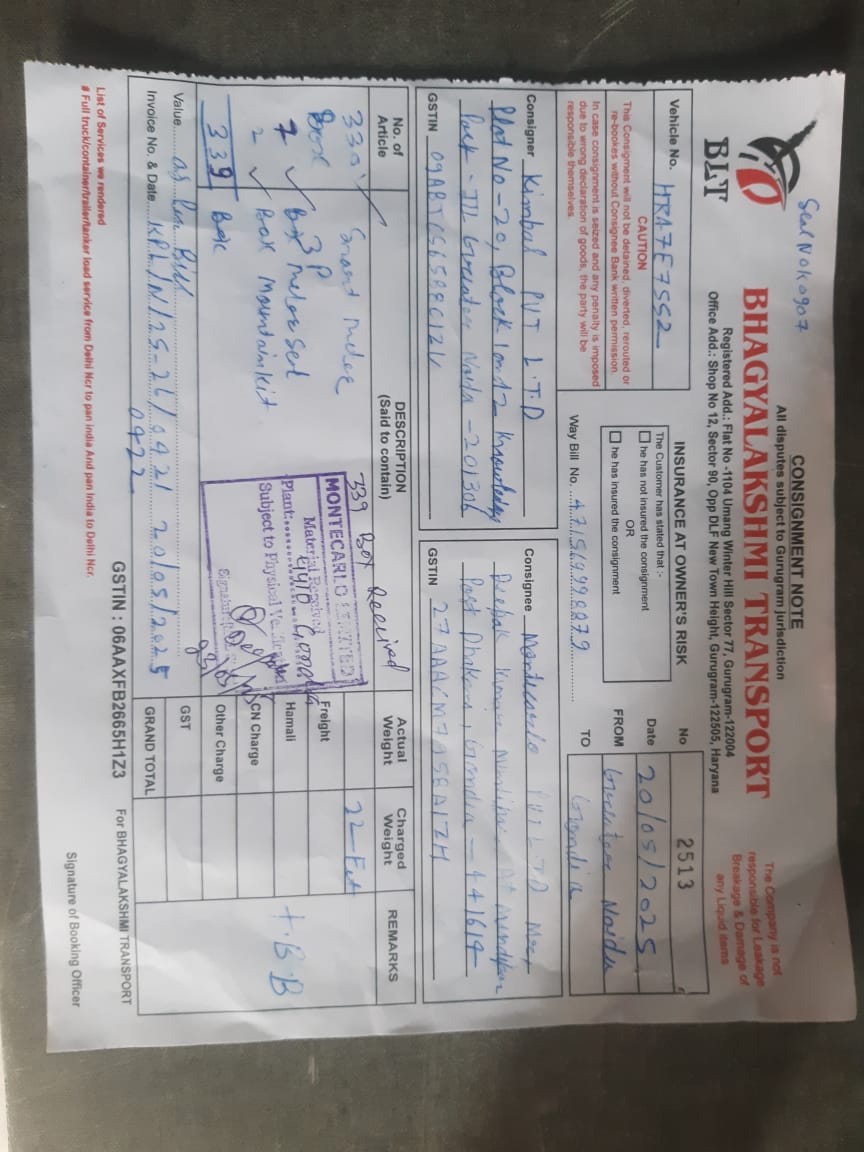 Seal No K0907
CONSIGNMENT NOTE
All disputes subject to Gurugram Jurisdiction
BLT
BHAGYALAKSHMI TRANSPORT
Registered Add.: Flat No -1104 Umang Winter Hill Sector 77, Gurugram-122004
Office Add.: Shop No 12, Sector 90, Opp DLF New Town Height, Gurugram-122505, Haryana
The Company is not
responsible for Leakage
Breakage & Damage of
any Liquid items
Vehicle No. HRA7E7552
CAUTION
This Consigment will not be detained, diverted, rerouted or
re-bookes without Consignee Bank written permission.
In case consignment is seized and any penalty is imposed
due to wrong declaration of goods, the party will be
responsible themselves.
INSURANCE AT OWNER'S RISK
The Customer has stated that :-
he has not insured the consignment
OR
he has insured the consignment
Way Bill No.
No 2513
Date 20/05/2025
FROM Greater Noida
TO Gondia
Consigner Kimbal PVT L.T.D
Plot No-20, Block 1 and 2 Knowledge
Park - III Greater Noida - 201306
GSTIN
Consignee Montecarlo PVT LTD
Gondia - 441614
GSTIN
No. of Article
DESCRIPTION
(Said to contain)
Actual Weight
Charged Weight
REMARKS
330 Box Smart Meter
3P
7 Box Meter Seal
2 Box Mountain kit
339 Box
339 Box Received
MONTECARLO LIMITED
Material Received
Plant:
Subject to Physical
Signature
22-Fet
T.B.B
Freight
Hamali
CN Charge
Other Charge
GST
GRAND TOTAL
Value as Per Bill
Invoice No. & Date KPL/N/25-26/0921 20/05/2025
0922
GSTIN : 06AAXFB2665H1Z3
For BHAGYALAKSHMI TRANSPORT
List of Services we rendered
# Full truck/container/trailer/tanker load service from Delhi Ncr to pan india And pan India to Delhi Ncr.
Signature of Booking Officer